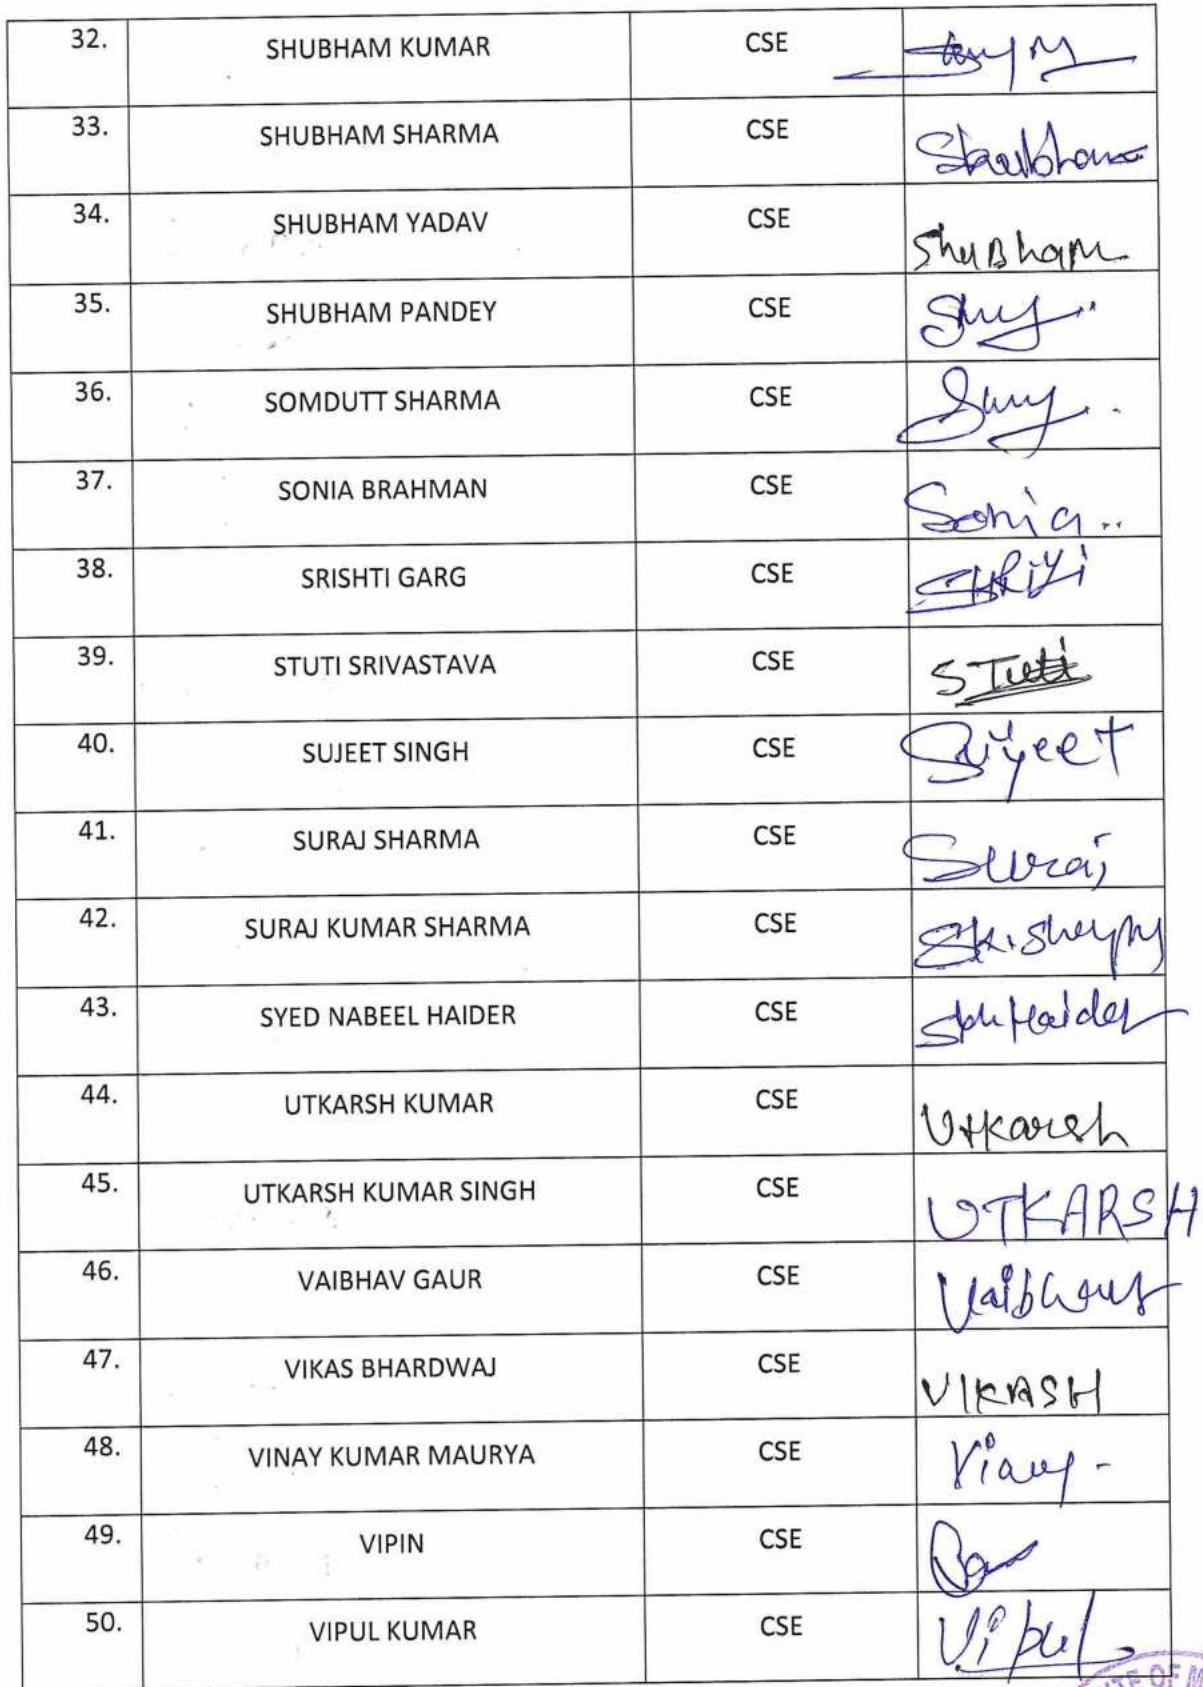 32. SHUBHAM KUMAR CSE
33. SHUBHAM SHARMA CSE Shubham
34. SHUBHAM YADAV CSE ShuBham
35. SHUBHAM PANDEY CSE
36. SOMDUTT SHARMA CSE
37. SONIA BRAHMAN CSE Sonia..
38. SRISHTI GARG CSE
39. STUTI SRIVASTAVA CSE STuti
40. SUJEET SINGH CSE Sujeet
41. SURAJ SHARMA CSE Suraj
42. SURAJ KUMAR SHARMA CSE
43. SYED NABEEL HAIDER CSE Haider
44. UTKARSH KUMAR CSE Utkarsh
45. UTKARSH KUMAR SINGH CSE UTKARSH
46. VAIBHAV GAUR CSE Vaibhav
47. VIKAS BHARDWAJ CSE VIKASH
48. VINAY KUMAR MAURYA CSE
49. VIPIN CSE
50. VIPUL KUMAR CSE Vipul
OF